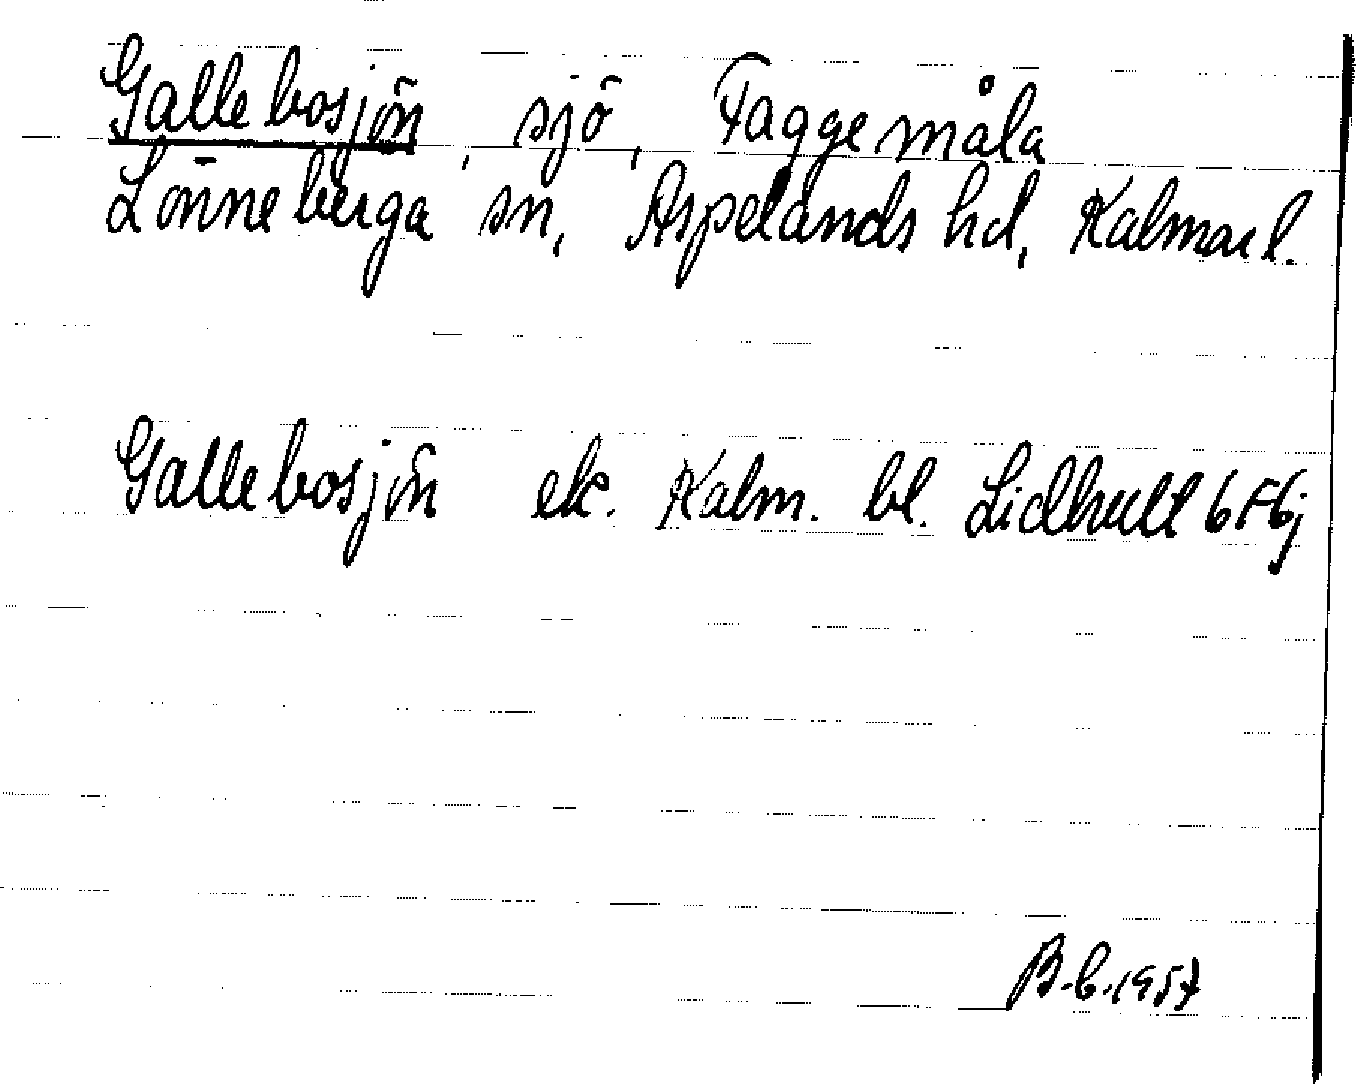 Gallebosjön, sjö, Faggemåla
Lönneberga sn, Aspelands hd, Kalmar l.
Gallebosjön ek. Kalm. bl. Lidhult 6F6j
B.b. 1957